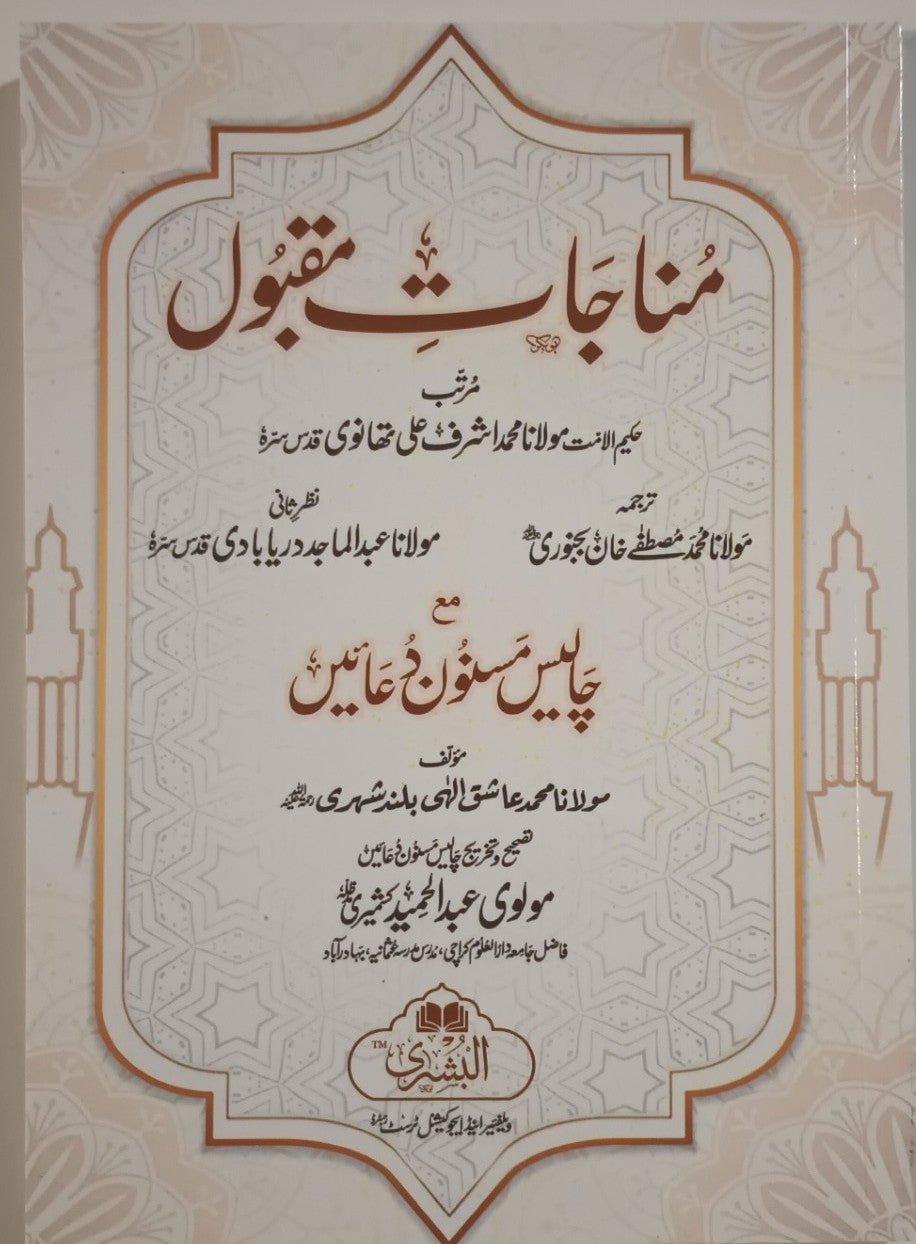 مُناجَاتِ مقبُول
مُرتّب
حکیم الامّت مولانا محمد اشرف علی تھانوی قدس سرّہٗ
ترجمہ
مولانا محمد مصطفٰے خان بجنوری
نظرِ ثانی
مولانا عبدالماجد دریابادی قدس سرّہٗ
مع
چَالیس مَسنُون دُعَائیں
مؤلّف
مولانا محمد عاشق الٰہی بلند شہری
تصحیح و تخریج چالیس مَسنُون دُعَائیں
مولوی عبدالحمید کشمیری
فاضل جامعہ دارالعلوم کراچی، مدرس مدرسہ عثمانیہ، بہادر آباد
البُشریٰ TM
ویلفیئر اینڈ ایجوکیشنل ٹرسٹ